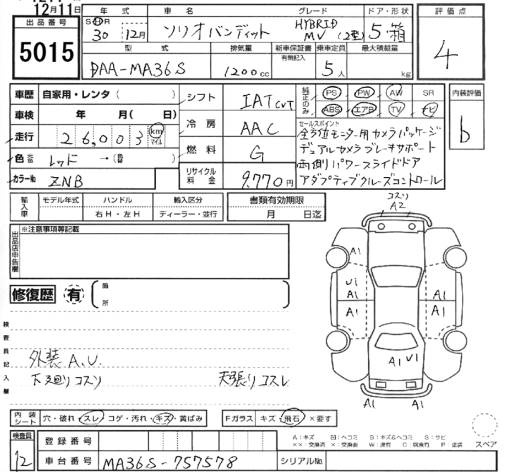 12月11日
出品番号
5015
年式 車名 グレード ドア・形状
S H R 30 12月 ソリオバンディット HYBRID MV (2型) 5 箱
型式 排気量 新車保証書 乗車定員 最大積載量
有無記入
DAA-MA36S 1200cc 5人 kg
評価点
4
車歴 自家用・レンタ( )
車検 年 月( 日)
走行 26,003 km マイル
色 レッド →( )
カラーNo ZNB
シフト IAT CVT
冷房 AAC
燃料 G
リサイクル料金 9,770円
純正のみ PS PW AW SR
ABS エアB TV
セールスポイント
全方位モニター用カメラパッケージ
デュアルカメラブレーキサポート
両側パワースライドドア
アダプティブクルーズコントロール
内装評価
b
輸入車 モデル年式 ハンドル 輸入区分
右H・左H ディーラー・並行
書類有効期限
月 日迄
出品店申告欄
※注意事項等記載
修復歴 有 箇所
検査員記入欄
外装A.U.
下廻りコスリ 天張りコスレ
コスリ
A2
A1 A1
U1
A1 A1
A1 A1
U1
A1
A1
内装シート 穴・破れ・スレ・コゲ・汚れ・キズ・黄ばみ Fガラス キズ・飛石・×要す
スペア
検査員
12
登録番号
車台番号 MA36S-757578 シリアルNo.